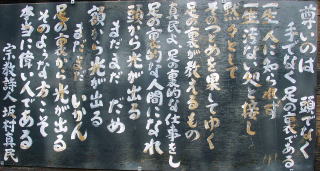 尊いのは 頭でなく
手でなく 足の裏である
一生人に知られず
一生汚ない処と接し
黙々として
そのつとめを果してゆく
足の裏が教えるもの
真民よ 足の裏的な仕事をし
足の裏的な人間になれ
頭から光が出る
まだまだ だめ
額から光が出る
まだまだ いかん
足の裏から光が出る
そのような方こそ
本当に偉い人である
宗教詩人 坂村真民